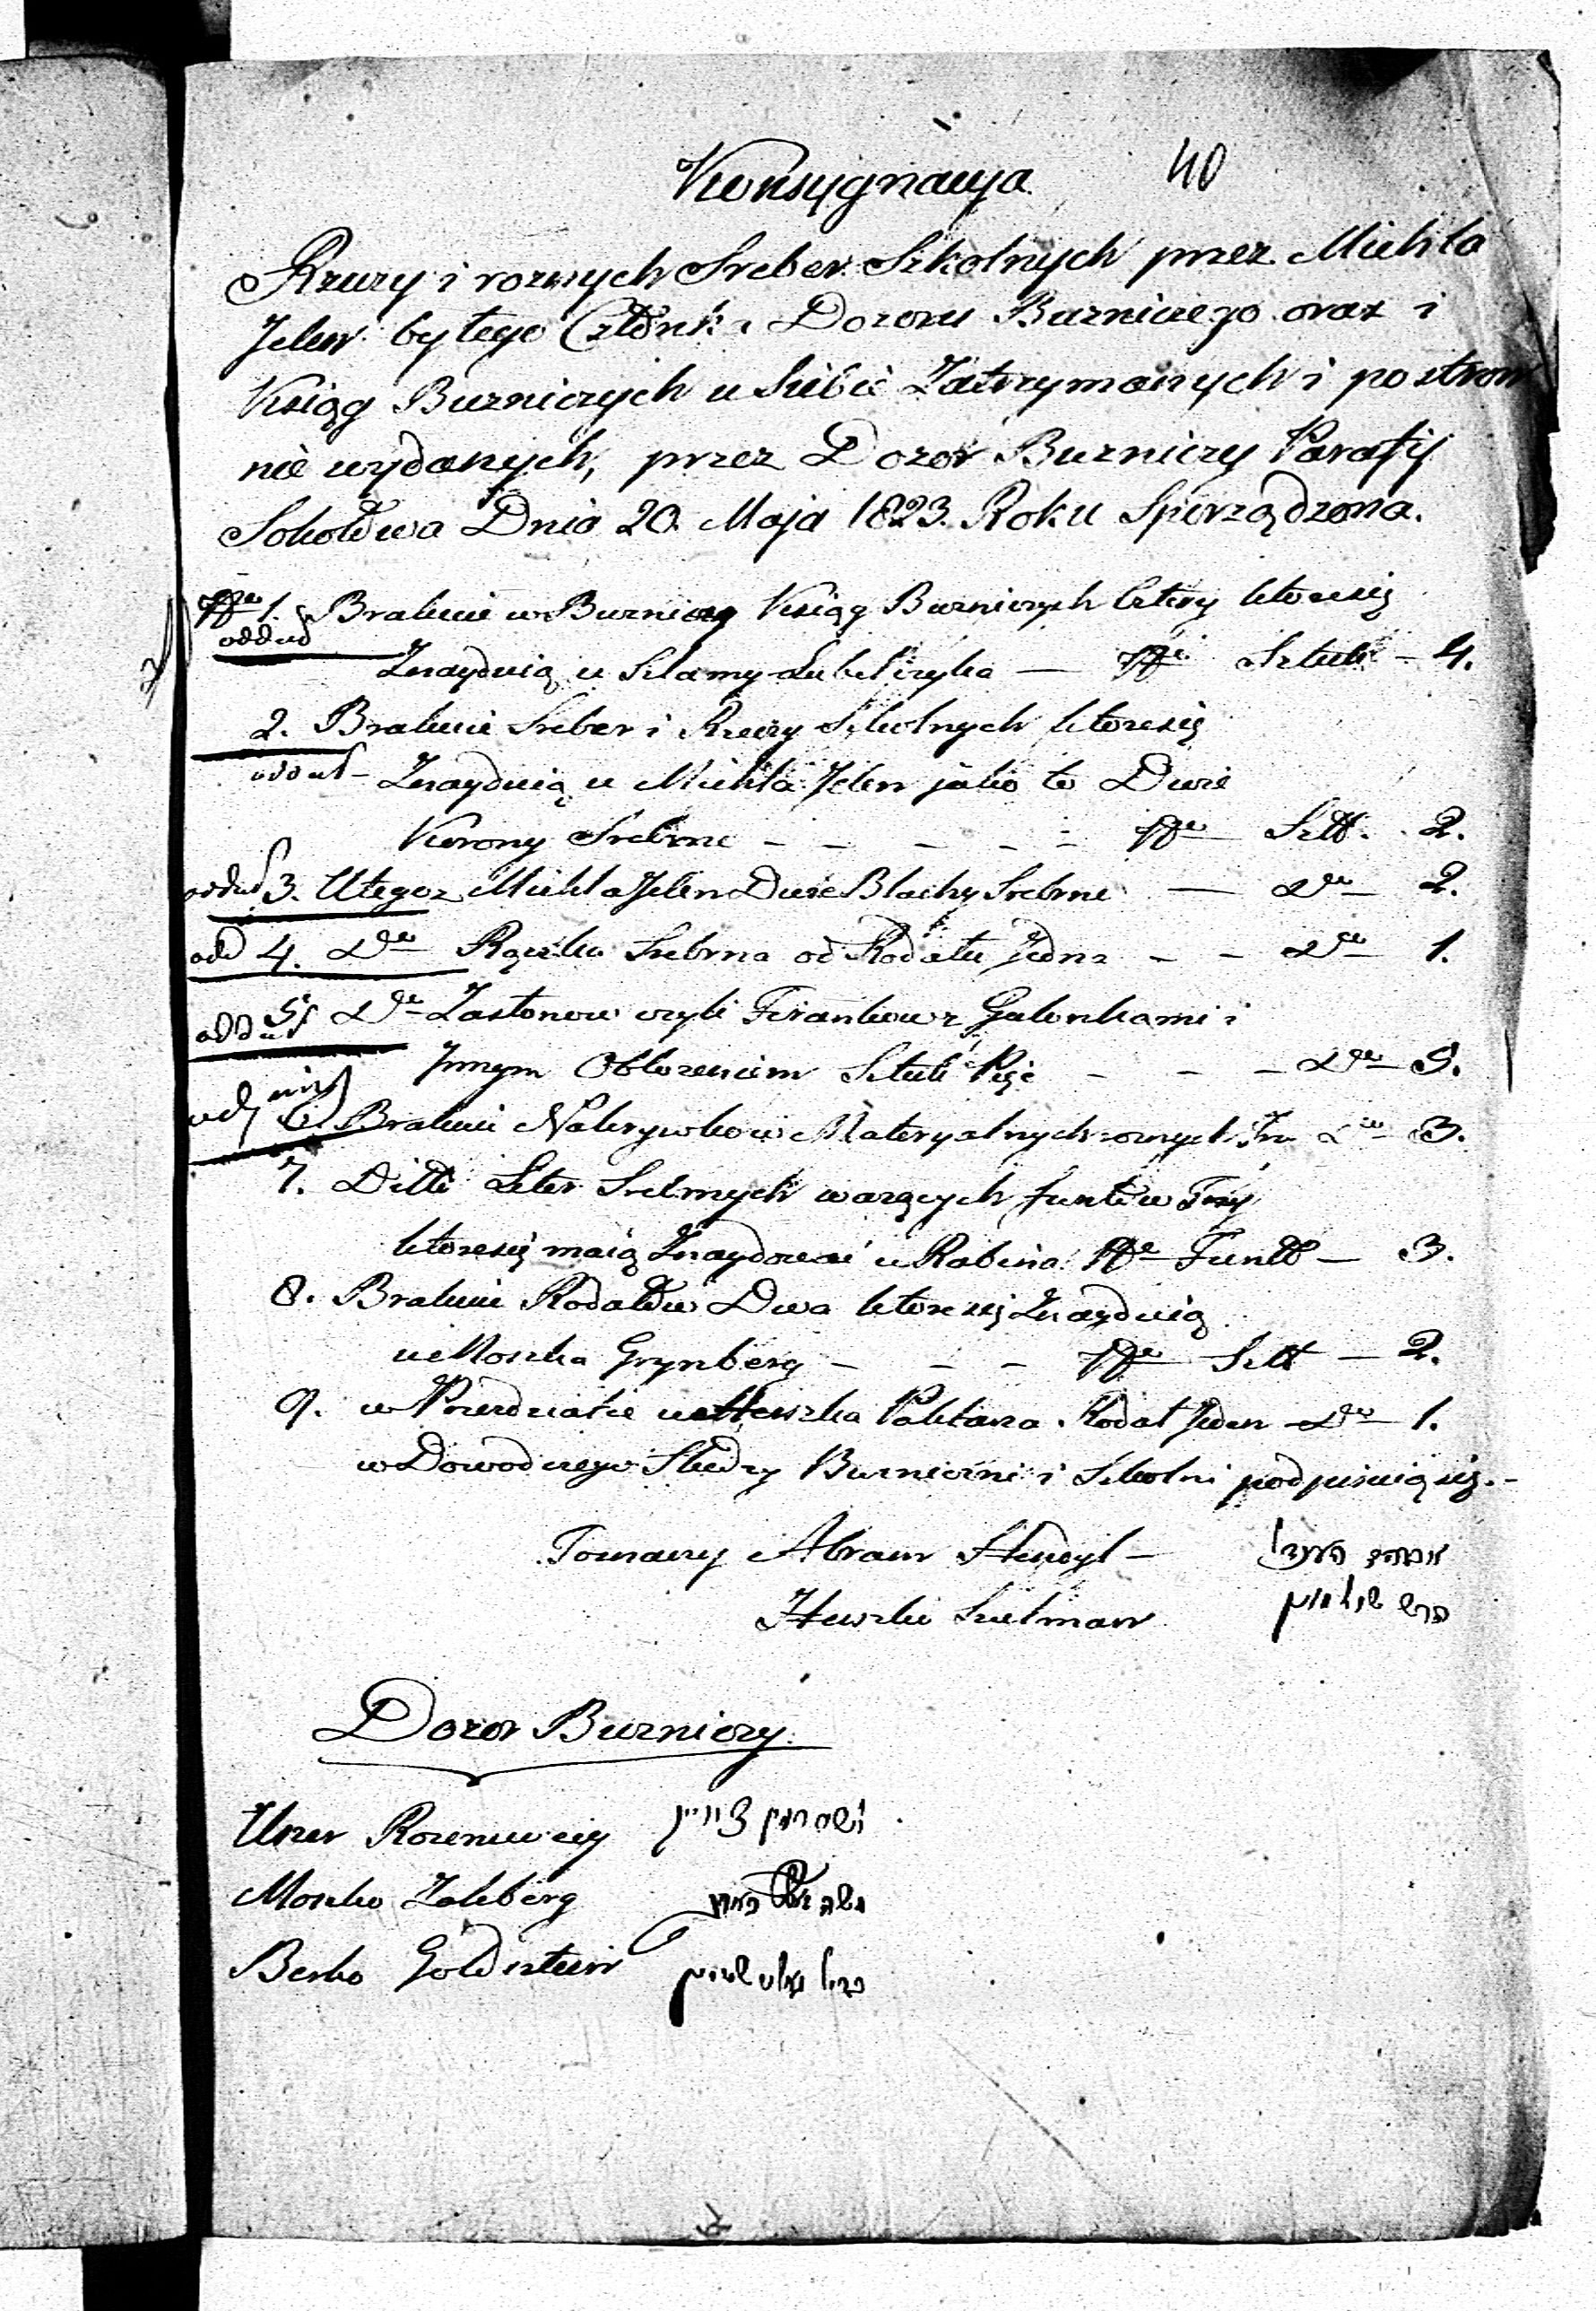 Konsygnacya 40
Rzeczy i roznych Sreber Szkolnych przez Michla
Jelen byłego Członka Dozoru Buzniczego oraz i
Ksiąg Buzniczych u Siebie Zatrzymanych i po stron
nie wydanych, przez Dozor Bużniczy Parafij
Sokołowa Dnia 20. Maja 1823. Roku Sporządzona.
1. Brakuie w Buznicy Ksiąg Buzniczych Cztery ktoresię
oddał
Znayduią u Szlamy Lubelczyka — Sztuk – 4.
2. Brakuie Sreber i Rzeczy Szkolnych ktoresię
oddał – Znayduią u Michla Jelen jako to Dwie
Korony Srebrne – – – – – Sztk. 2.
oddał 3. Utegoz Michla Jelen Dwie Blachy Srebrne — de 2.
odd 4. De Rączka Srebrna od Rodału Jedna – – de 1.
oddał 5. De Zasłonow czyli Firankow z Galonkami i
Jnnym Obłozeniem Sztuk Pięć – – – de 5.
6. Brakuie Nakrywkow Materyalnych roznych Trzy de 3.
7. Ditto Liter Srebrnych warzących funtow Trzy
ktoresię maią Znaydować u Rabina Funtow – 3.
8. Brakuie Rodałow Dwa ktoresię Znayduią
u Moszka Grynberg – – – Sztk – 2.
9. w Przezdziatce u Herszka Pakciarza Rodał Jeden de 1.
w Dowod czego Szkolni podpisuią się. –
Abram Hendyl –
Herszko Szulman
Dozor Buzniczy.
Uszer Rozencweig
Moszko Zakberg
Berko Goldsztein